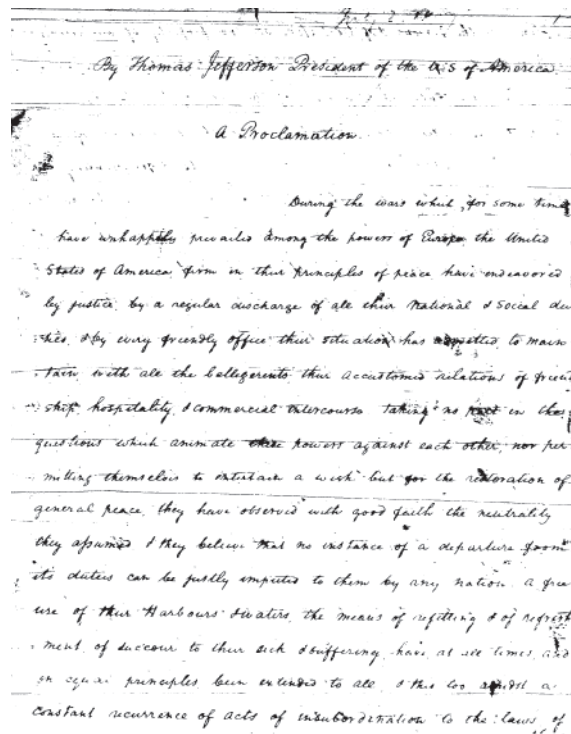 July 2. 1807
By Thomas Jefferson President of the U S of America
A Proclamation
During the wars which, for some time
have unhappily prevailed among the powers of Europe the United
States of America firm in their principles of peace have endeavored
by justice, by a regular discharge of all their National & Social du
ties, & by every friendly office their situation has admitted, to main
tain with all the belligerents their accustomed relations of friend
ship, hospitality, & commercial intercourse taking no part in the
questions which animate these powers against each other, nor per
mitting themselves to entertain a wish but for the restoration of
general peace, they have observed with good faith the neutrality
they assumed & they believe that no instance of a departure from
its duties can be justly imputed to them by any nation. a free
use of their Harbours & waters, the means of refitting & of refresh
ment, of succour to their sick & suffering, have, at all times, and
on equal principles, been extended to all, & this too amidst a
constant recurrence of acts of insubordination to the laws, of